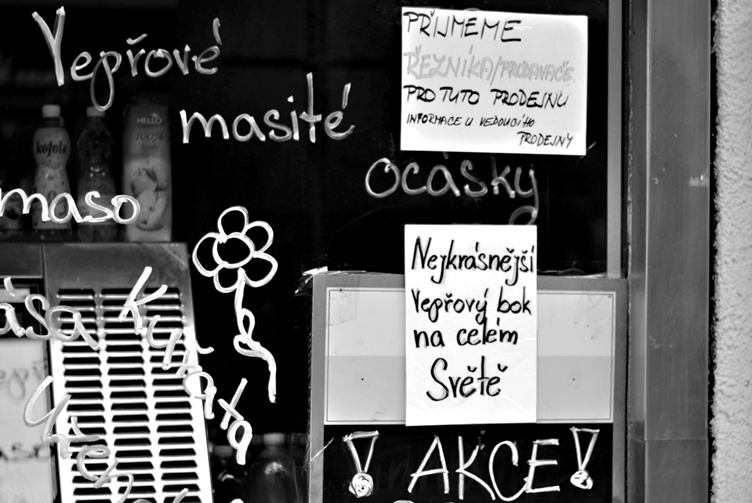 Vepřové
masité
ocásky
PŘIJMEME
ŘEZNÍKA/PRODAVAČE
PRO TUTO PRODEJNU
INFORMACE U VEDOUCÍHO
PRODEJNY
kofola
HELLO
100%
maso
Kuřata
Nejkrásnější
Vepřový bok
na celém
Světě
! AKCE!